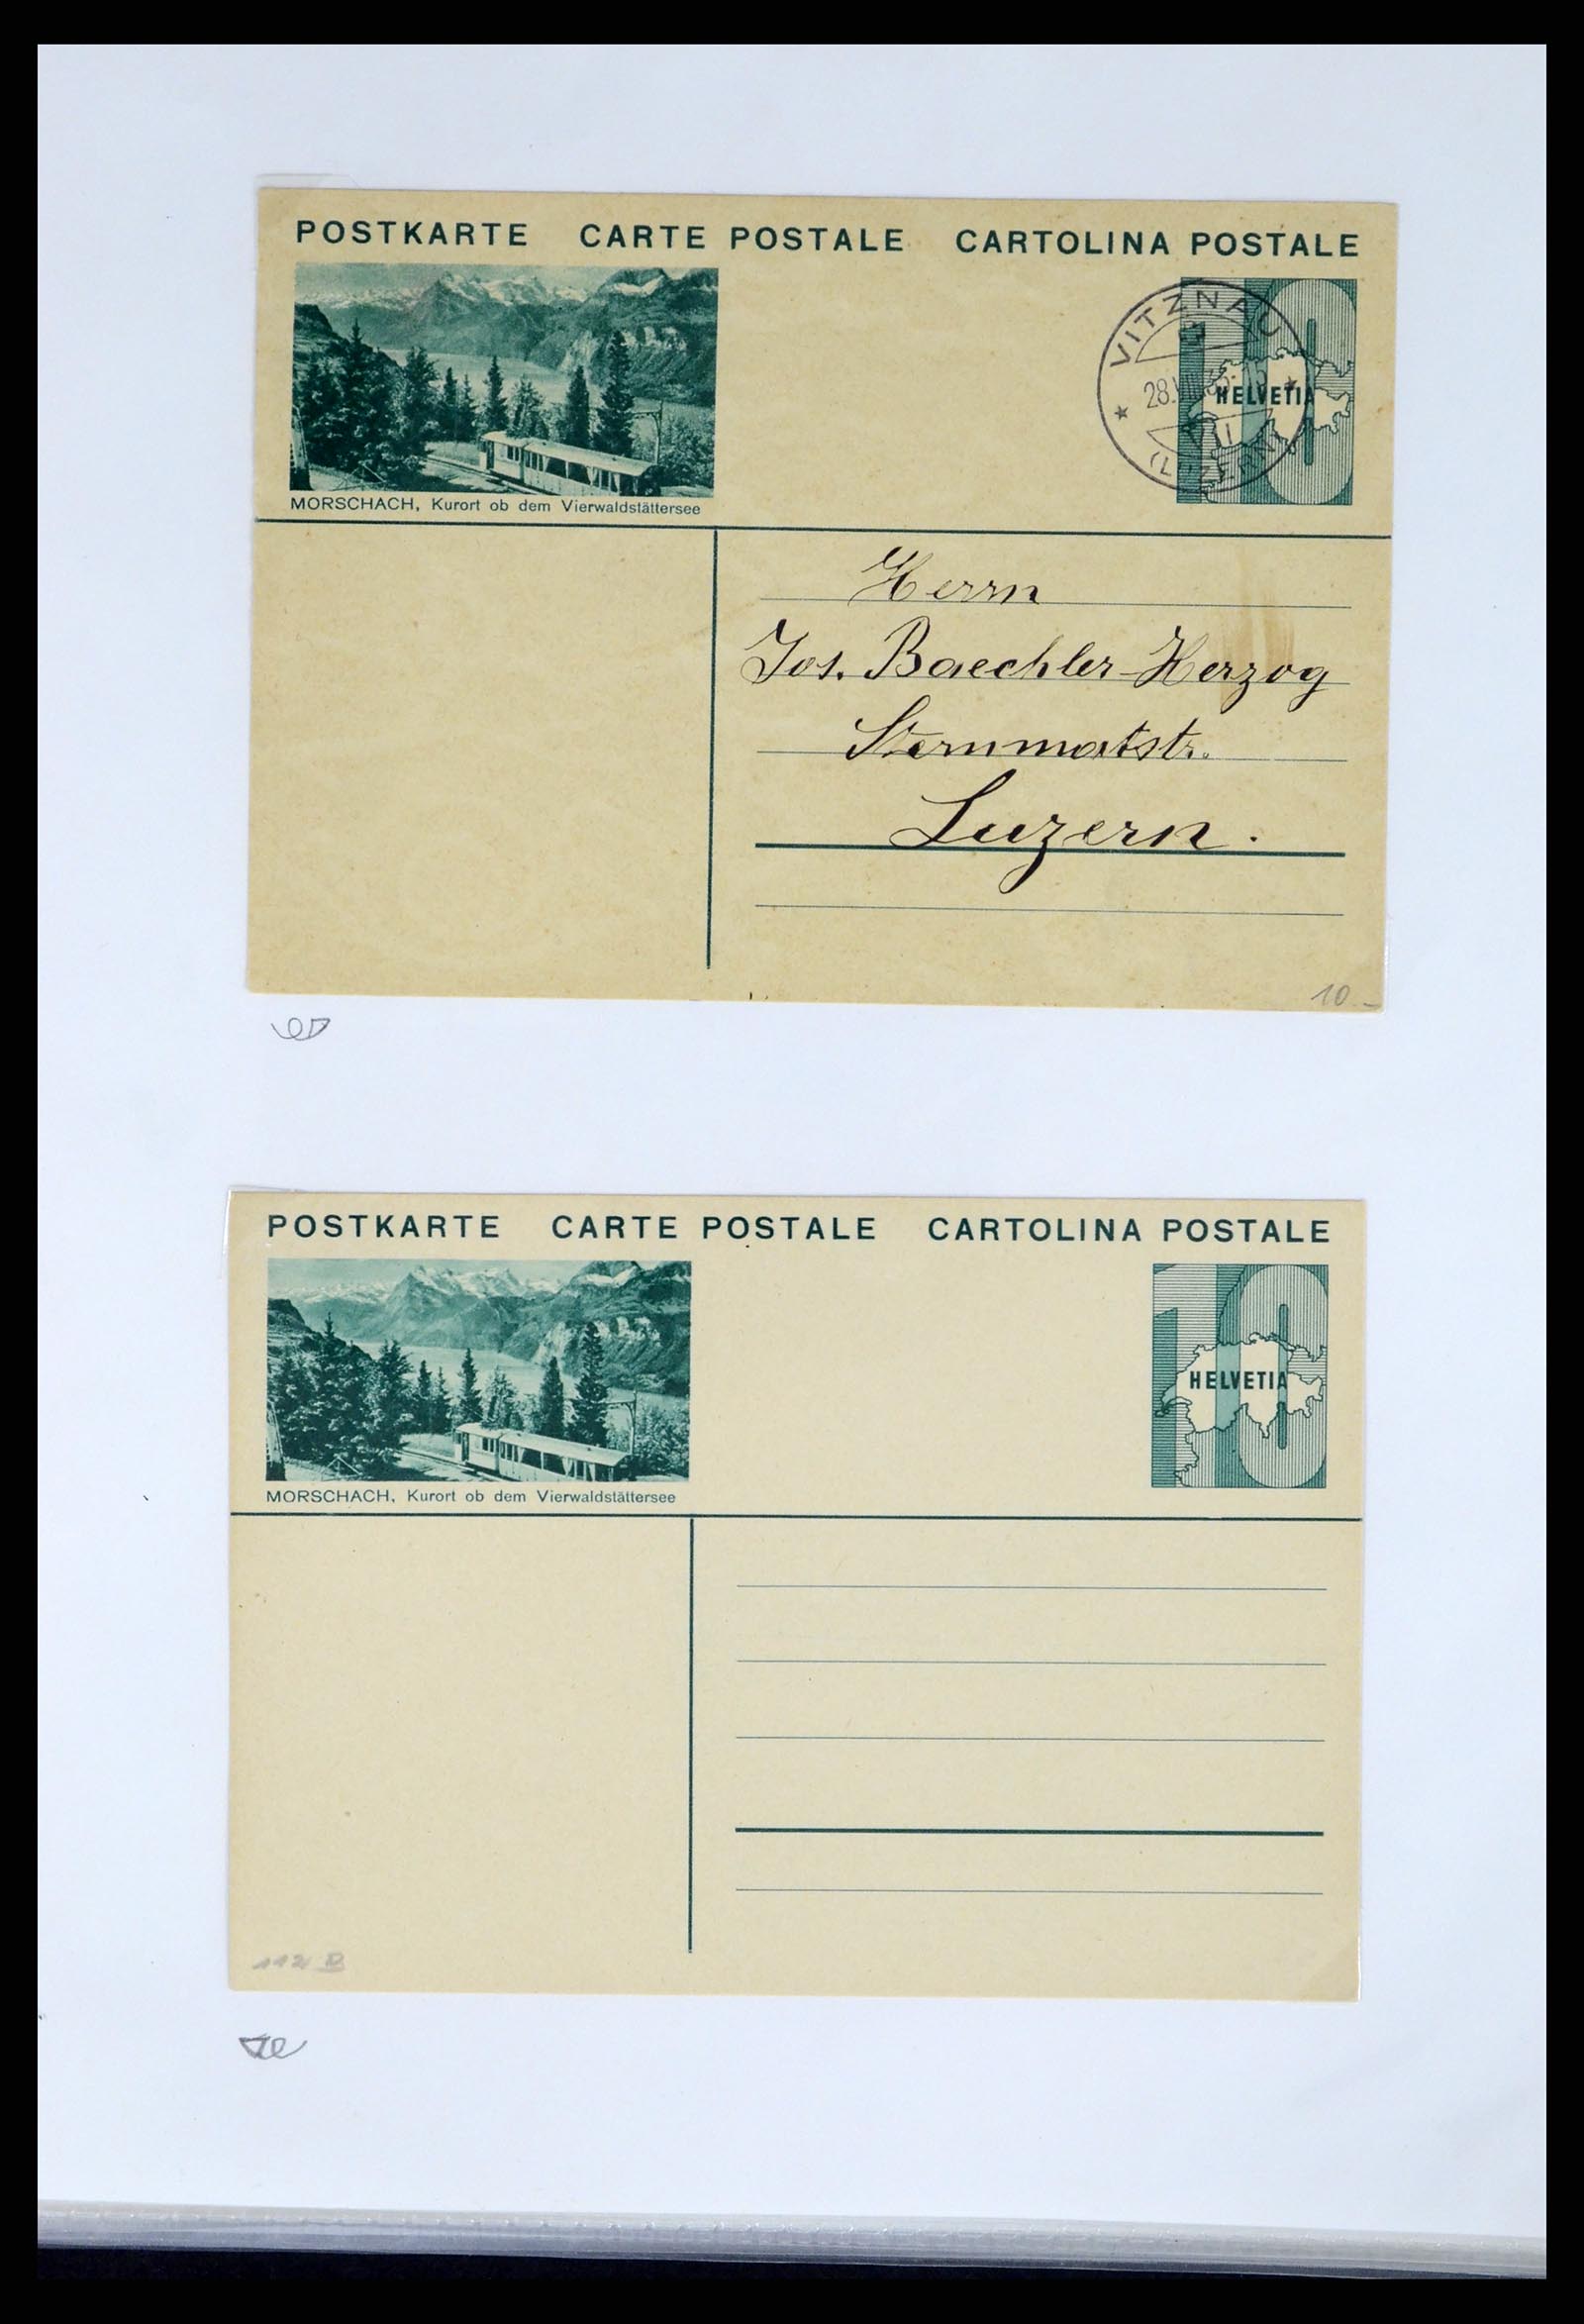 POSTKARTE CARTE POSTALE CARTOLINA POSTALE
VITZNAU
28.
HELVETIA
10
MORSCHACH, Kurort ob dem Vierwaldstättersee
Herrn
Jos. Baechler-Herzog
Sternmattstr.
Luzern.
10.-
POSTKARTE CARTE POSTALE CARTOLINA POSTALE
10
HELVETIA
MORSCHACH, Kurort ob dem Vierwaldstättersee
112 B